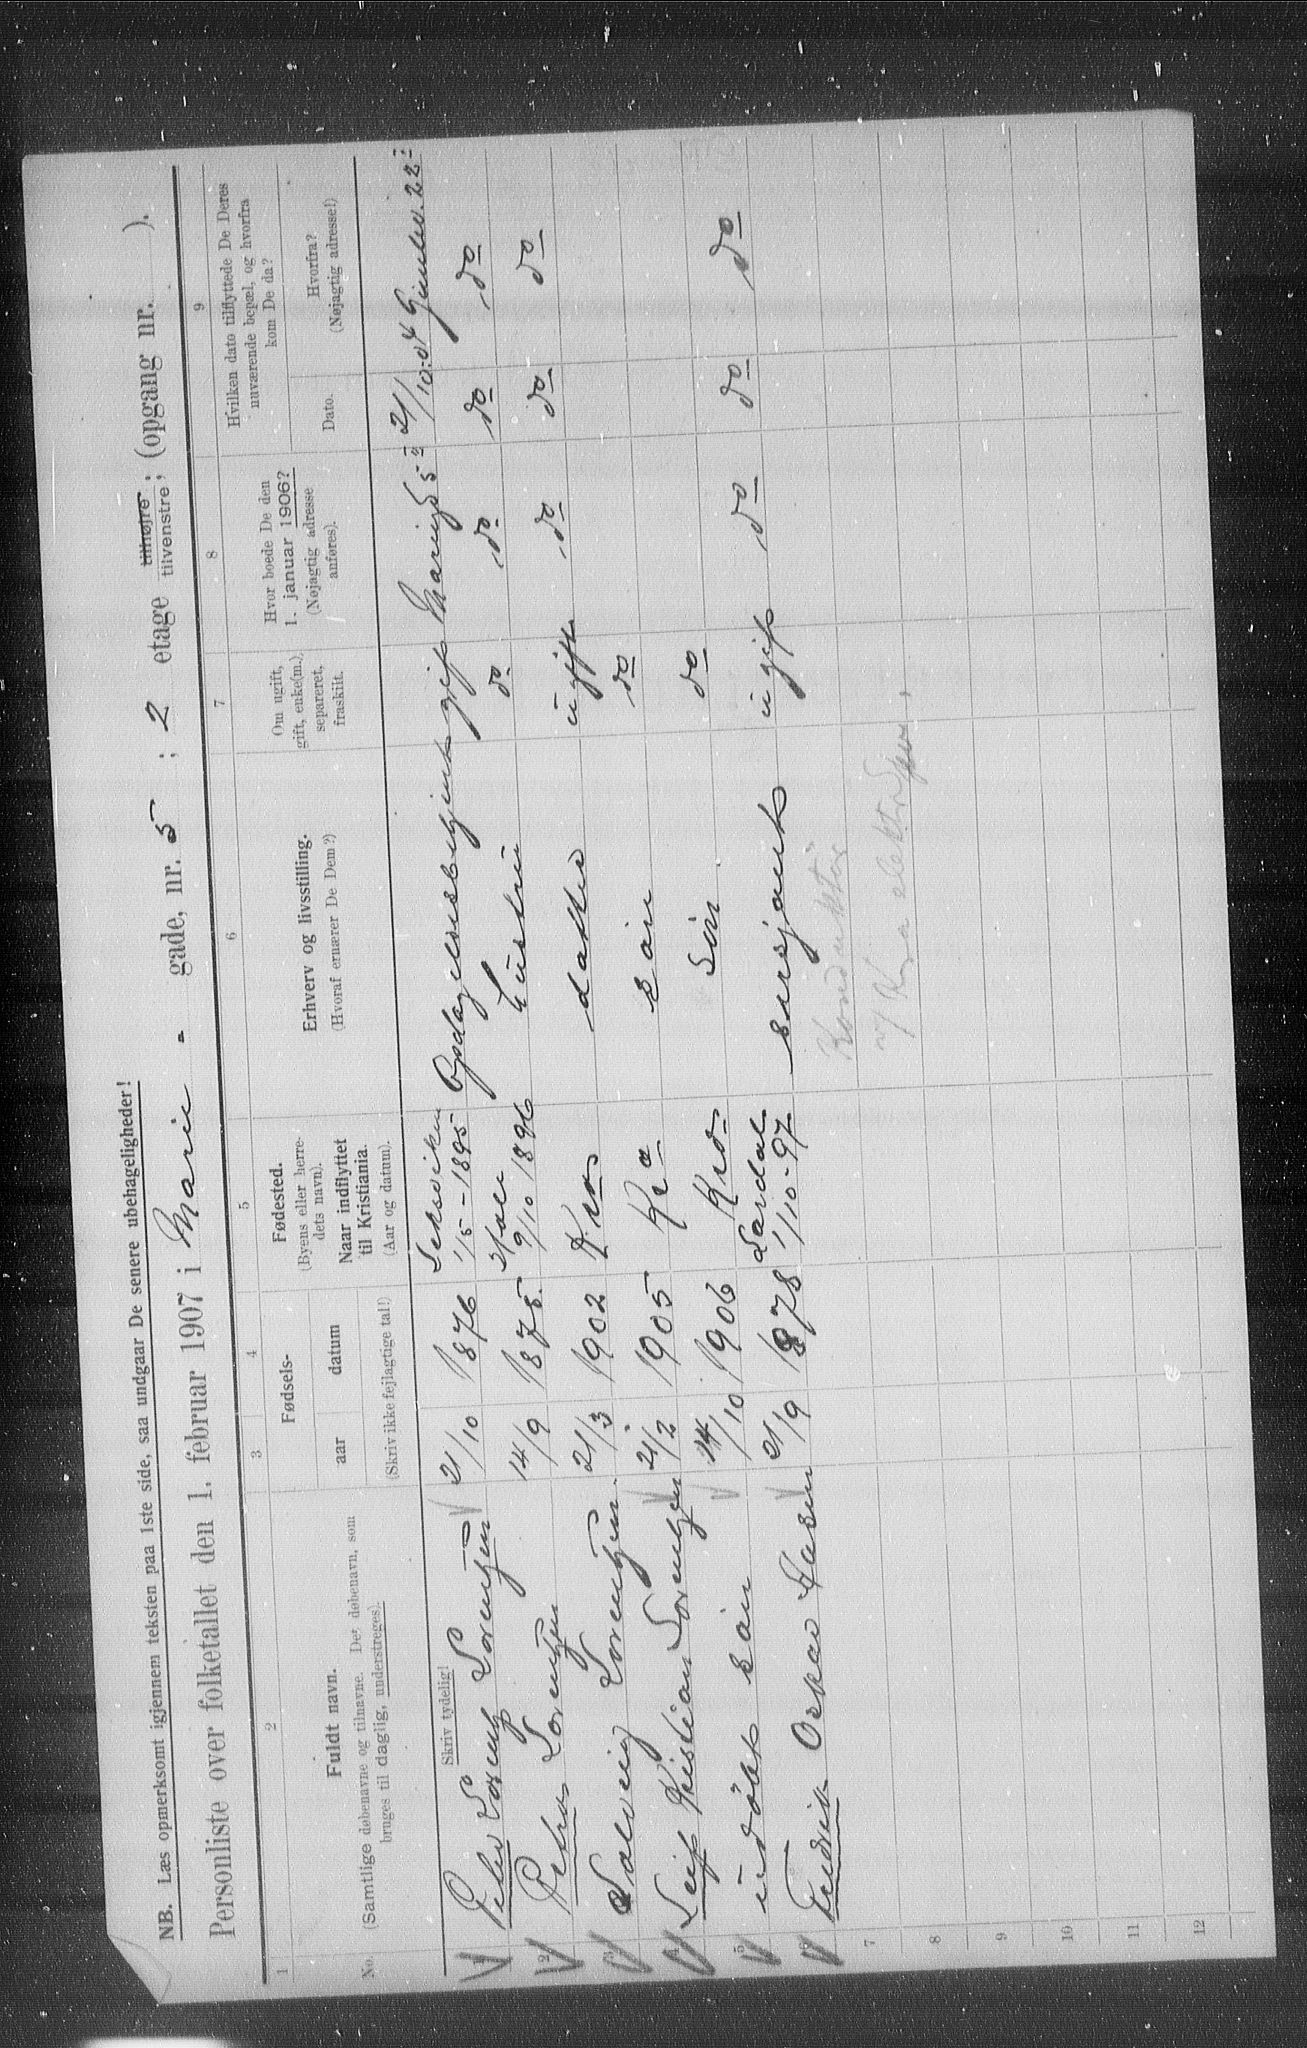 NB. Læs opmerksomt igjennem teksten paa 1ste side, saa undgaar De senere ubehageligheder!
Personliste over folketallet den 1. februar 1907 i Marie - gade, nr. 5 ; 2 etage tilhøjre tilvenstre; (opgang nr. ).
1 2 3 4 5 6 7 8 9
No. Fuldt navn. (Samtlige døbenavne og tilnavne. Det døbenavn, som bruges til daglig, understreges).
Fødsels-
aar datum
(Skriv ikke fejlagtige tal!)
Fødested. (Byens eller herredets navn). Naar indflyttet til Kristiania. (Aar og datum).
Erhverv og livsstilling. (Hvoraf ernærer De Dem?)
Om ugift, gift, enke(m.), separeret, fraskilt.
Hvor boede De den 1. januar 1906? (Nøjagtig adresse anføres).
Hvilken dato tilflyttede De Deres nuværende bopæl, og hvorfra kom De da?
Dato. Hvorfra? (Nøjagtig adresse!)
Skriv tydelig!
1 Peder Lorentz Lorentzen 21/10 1876 1/5 - 1895 Opdagelsesbetjent gift 21/10-04
2 Petra Lorentzen 14/9 1875 9/10 1896 hustru do do do do
3 Solveig Lorentzen 21/3 1902 Kra datter ugift do do do
4 Leif Kristian Lorentzen 21/2 1905 Kra søn do
5 udøbt søn 14/10 1906 Kra Søn do
6 Fredrik Oskar 21/9 1878 1/10-97 sersjant ugift do do do
Konduktør
v/ Kra elektr. Spor.
7
8
9
10
11
12